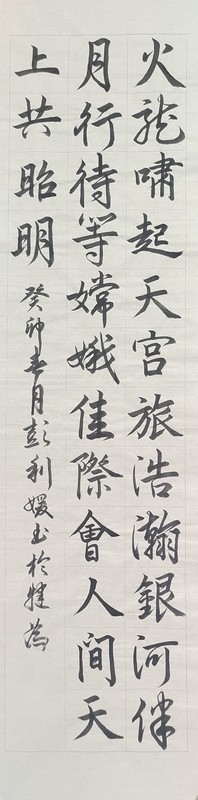 火龍嘯起天宮旅浩瀚銀河伴
月行待等嫦娥佳際會人間天
上共昭明
癸卯春月彭利媛书於